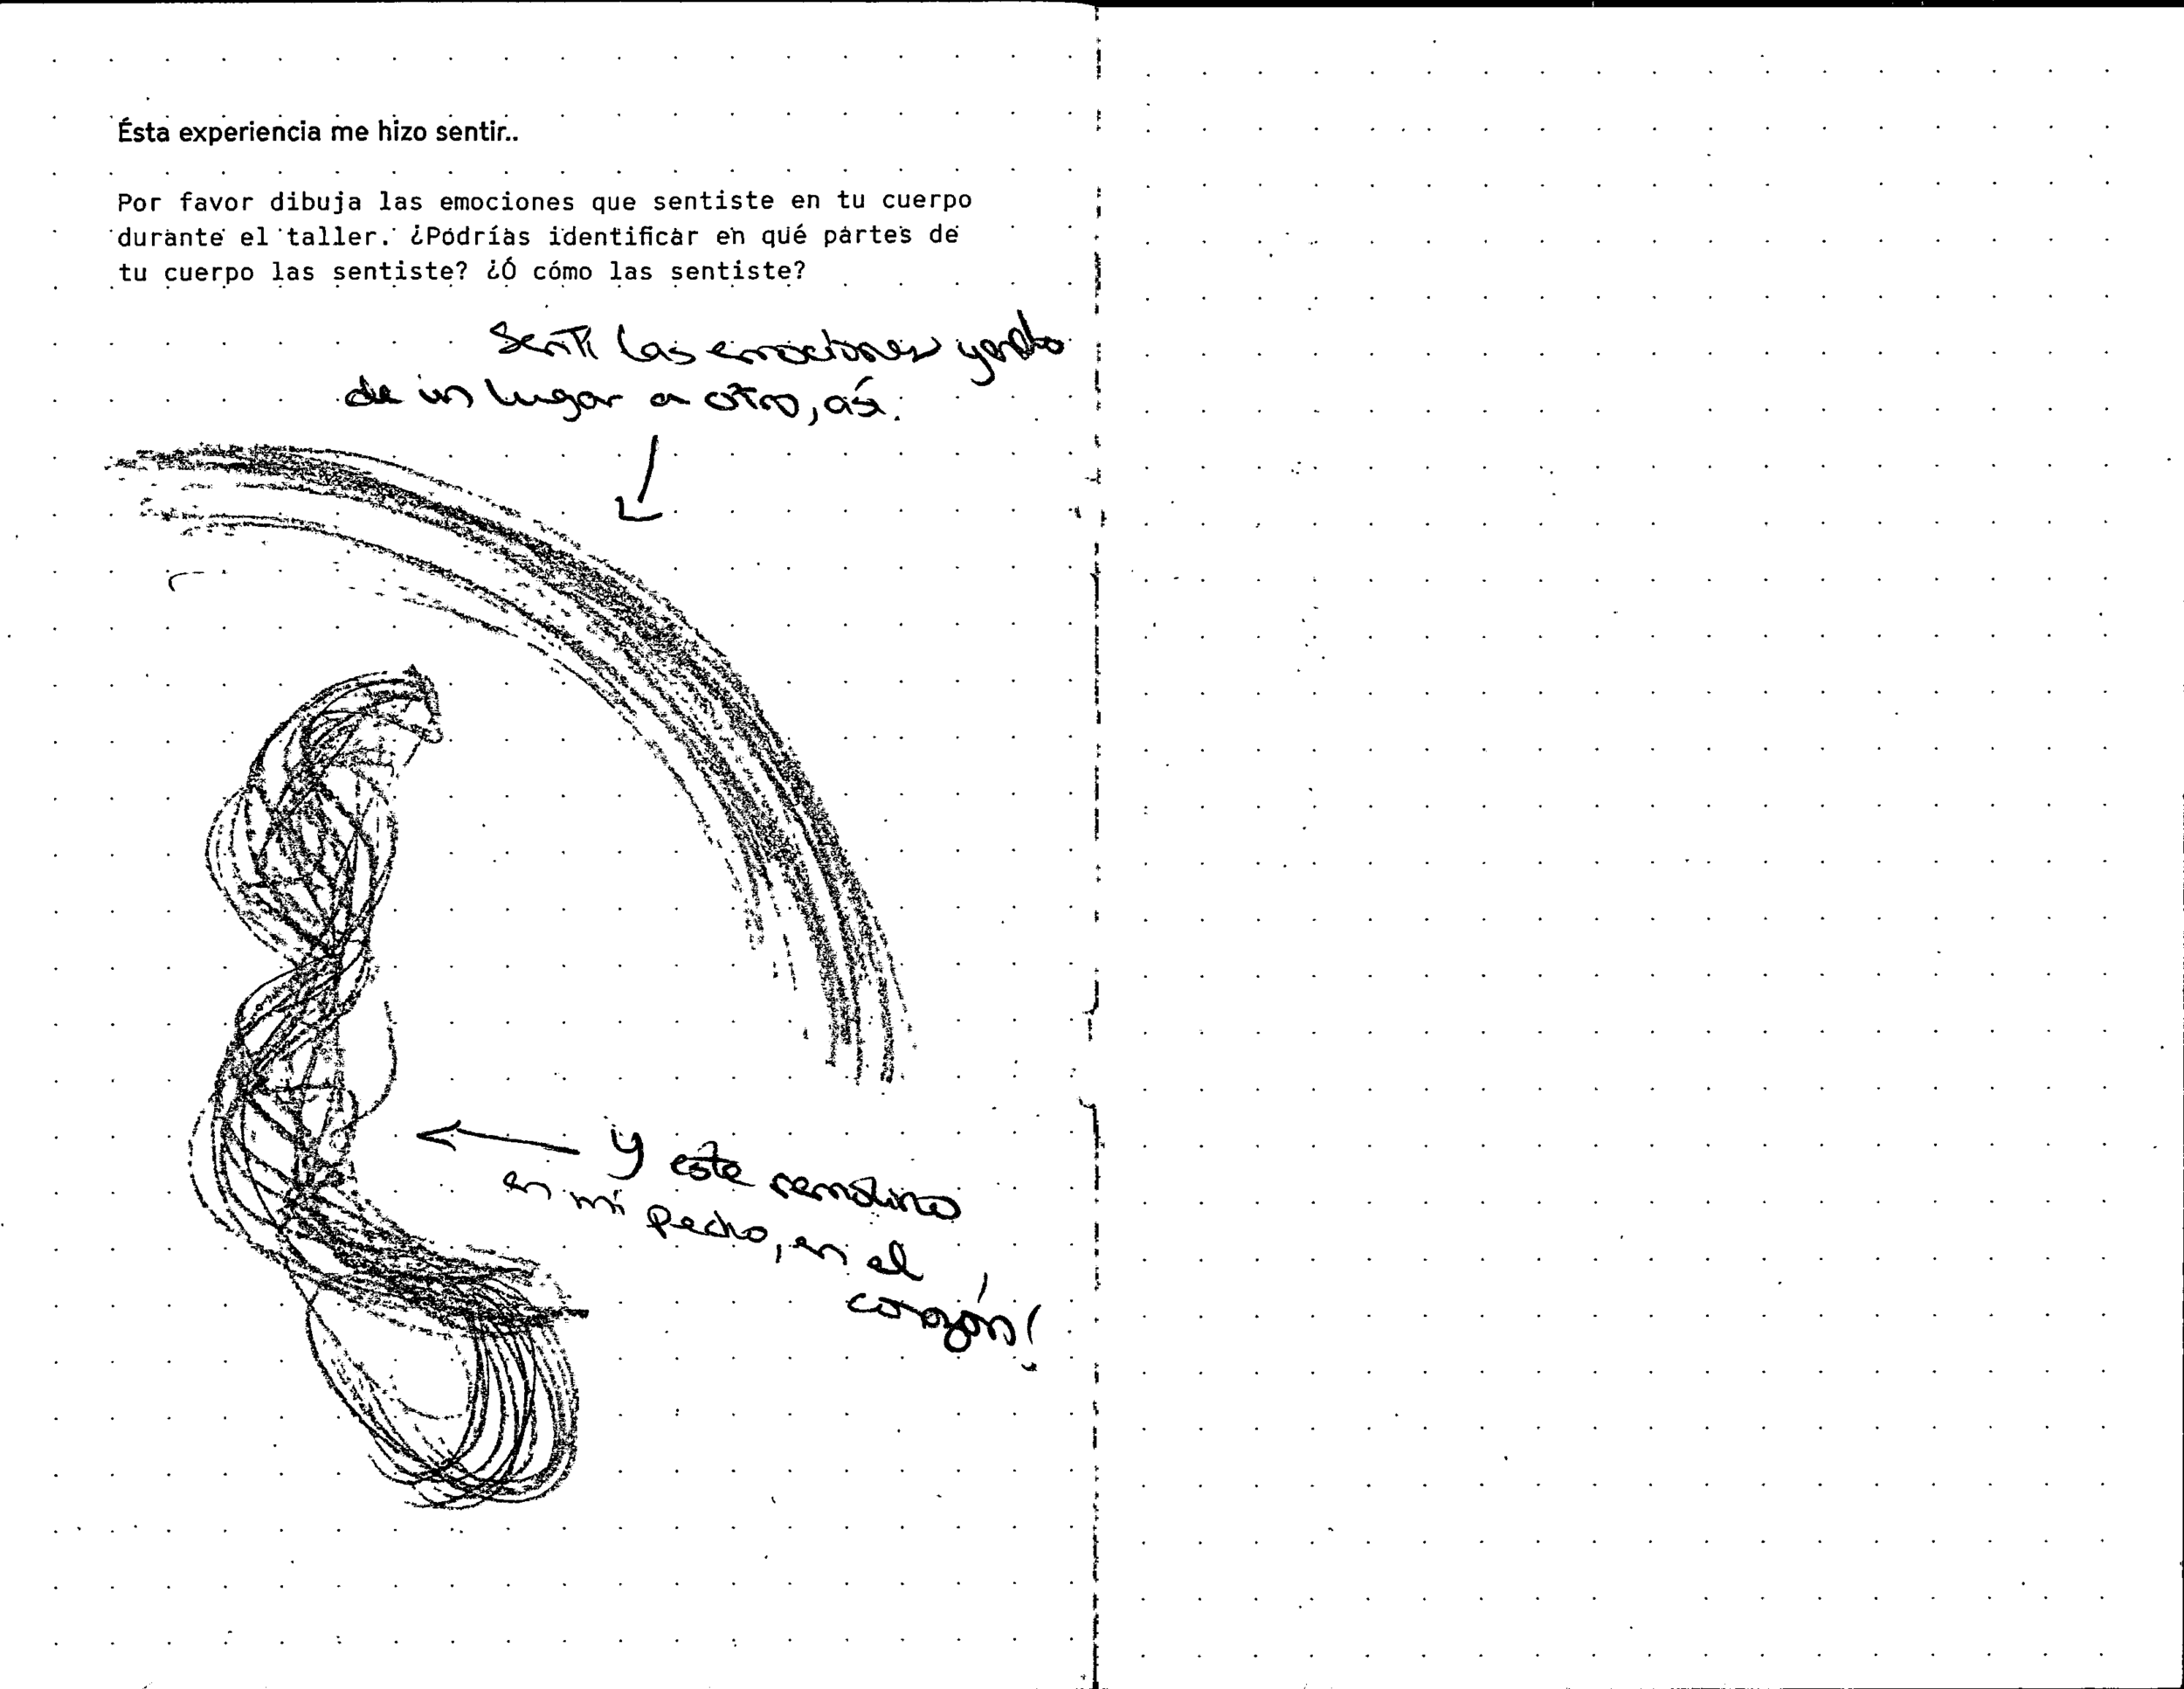 Ésta experiencia me hizo sentir..
Por favor dibuja las emociones que sentiste en tu cuerpo
durante el taller. ¿Podrías identificar en qué partes de
tu cuerpo las sentiste? ¿Ó cómo las sentiste?
Sentí las emociones yendo
de un lugar a otro, así.
y este remolino
en mi pecho, en el
corazón!